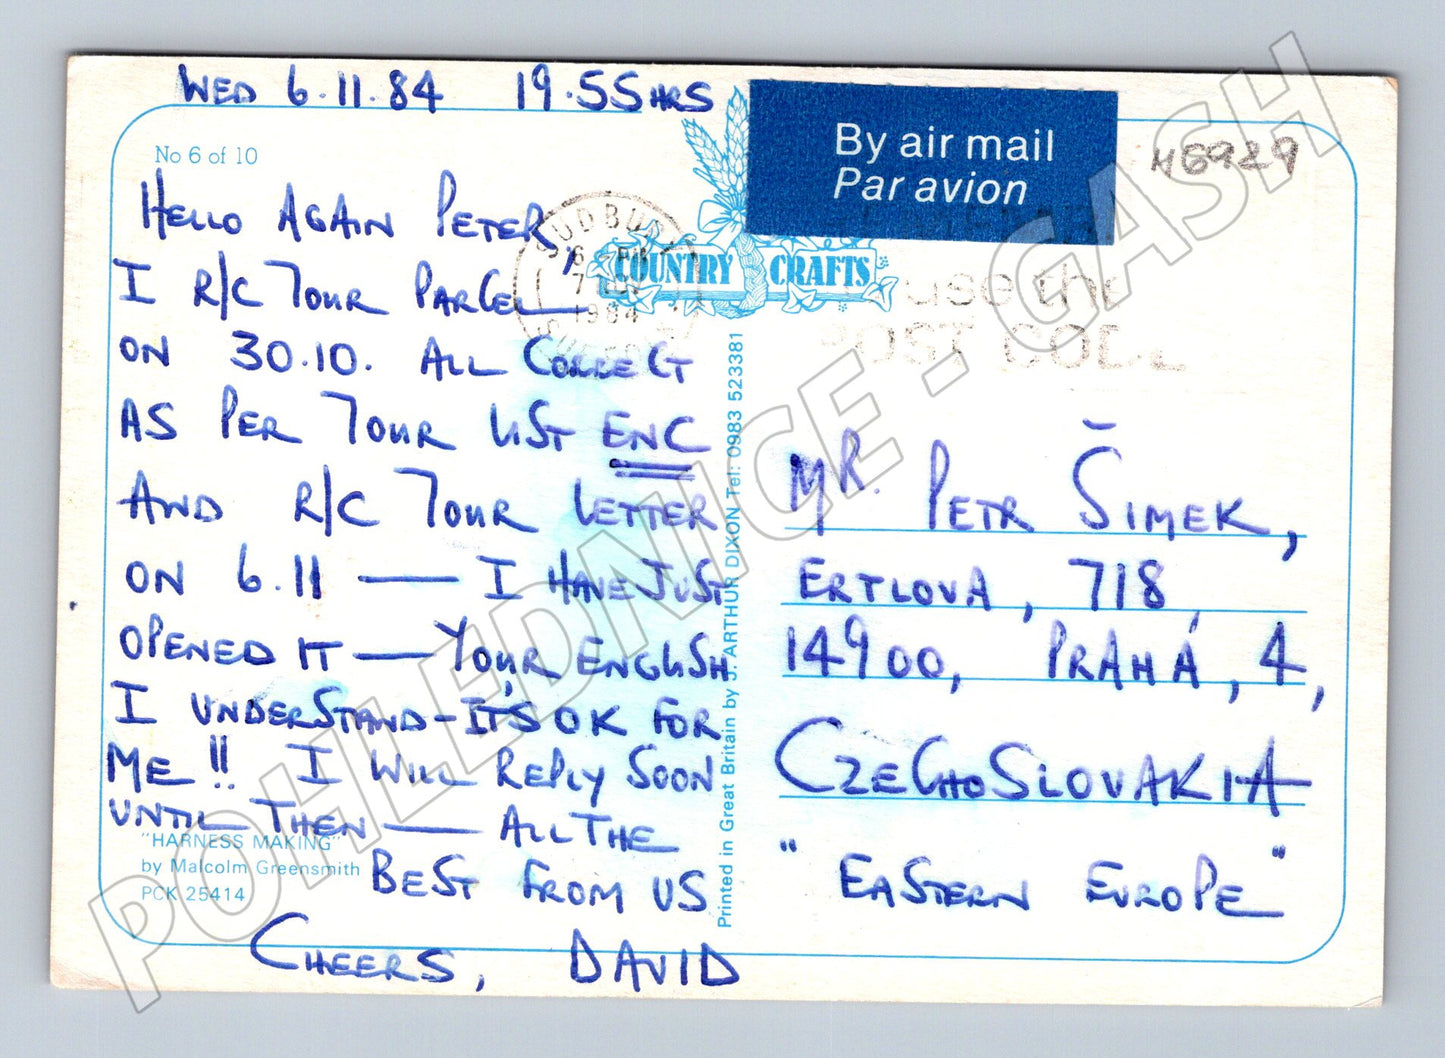 WED 6.11.84 19.55 HRS
No 6 of 10
HELLO AGAIN PETER,
I R/C YOUR PARCEL
ON 30.10. ALL CORRECT
AS PER YOUR LIST ENC
AND R/C YOUR LETTER
ON 6.11 — I HAVE JUST
OPENED IT — YOUR ENGLISH
I UNDERSTAND - IT'S OK FOR
ME !! I WILL REPLY SOON
UNTIL THEN — ALL THE
BEST FROM US
CHEERS, DAVID
"HARNESS MAKING"
by Malcolm Greensmith
PCK 25414
COUNTRY CRAFTS
SUDBURY
1984
Printed in Great Britain by J. ARTHUR DIXON Tel: 0983 523381
By air mail
Par avion
use the
POST CODE
MR. PETR ŠIMEK,
ERTLOVA, 718,
14900, PRAHÁ, 4,
CZECHOSLOVAKIA
"EASTERN EUROPE"
POHLEDNICE - GASH